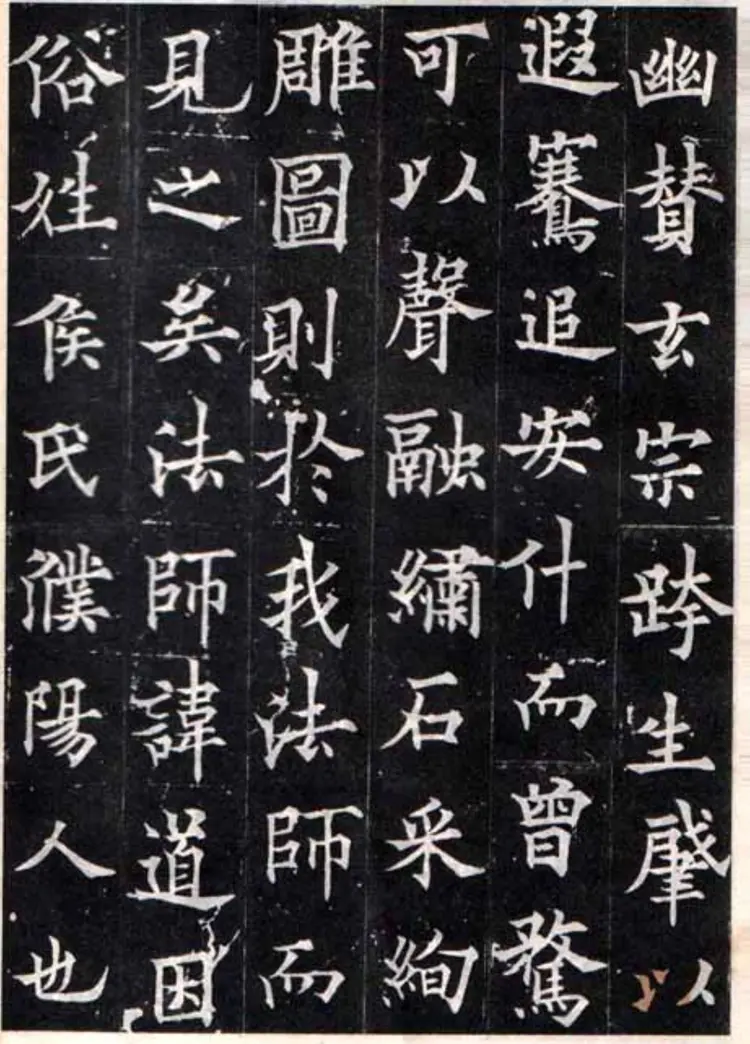 幽賛玄宗跨生肇以
遐騫追安什而曾騖
可以聲融繡石采絢
雕圖則於我法師而
見之矣法師諱道因
俗姓侯氏濮陽人也